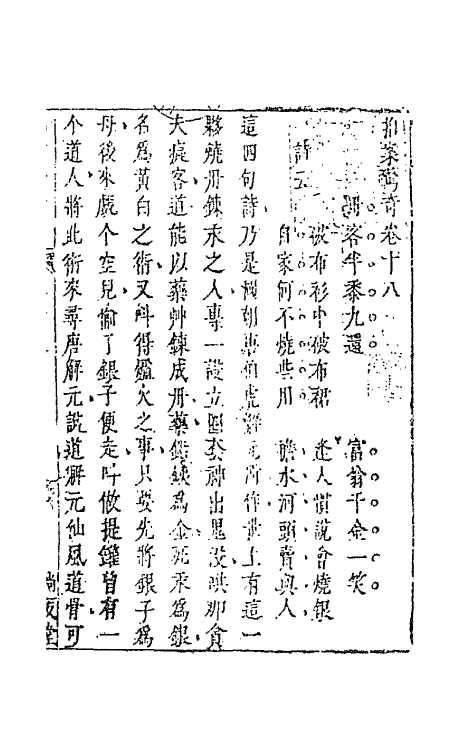 拍案驚奇卷十八
丹客半黍九還　富翁千金一笑
詩云
破布衫巾破布裙　逢人慣說會燒銀
自家何不燒些用　擔水河頭賣與人
這四句詩乃是國朝唐伯虎解元所作世上有這一
夥燒丹鍊汞之人專一設立圈套神出鬼沒哄那貪
夫癡客道能以藥艸鍊成丹藥鉛鐵為金死汞為銀
名為黃白之術又叫得爐火之事只要先將銀子為
母後來覷个空兒偷了銀子便走叫做提罐曾有一
个道人將此術來尋唐解元說道解元仙風道骨可
尚友堂